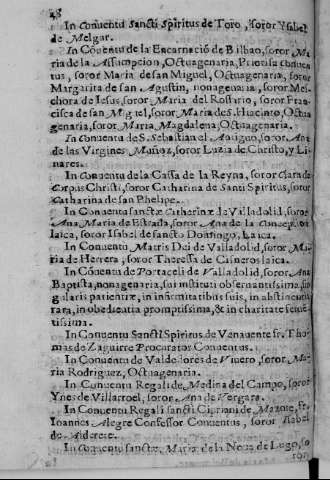 28
In Conuentu Sancti Spiritus de Toro, soror Ysabel
de Melgar.
In Cōuentu de la Encarnació de Bilbao, soror Ma
ria de la Assumpcion, Octuagenaria, Priorisa conuen
tus, soror Maria de san Miguel, Octuagenaria, soror
Margarita de san Agustin, nonagenaria, soror Mel-
chora de Iesus, soror Maria del Rosario, soror Fran-
cisca de san Miguel, soror Maria de S. Hacinto, Octua
genaria, soror Maria Magdalena, Octuagenaria.
In Conuentu de S. Sebastian el Antiguo, soror Ana
de las Virgines Muñoz, soror Luzia de Christo, y Li-
nares.
In Conuentu de la Cassa de la Reyna, soror Clara de
Corpus Christi, soror Catharina de Santi Spiritus, soror
Catharina de san Phelipe.
In Conuentu sanctæ Catherinæ de Valladolid, soror
Ana Maria de Estrada, soror Ana de la Concepcion
laica, soror Isabel de sancto Domingo, Laica.
In Conuentu Matris Dei de Valladolid, soror Ma-
ria de Herrera, soror Theressa de Cisneros laica.
In Cōuentu de Portaceli de Valladolid, soror Ana
Baptista, nonagenaria, sui instituti obseruantissima, sin
gularis patientiæ, in infirmitatibus suis, in abstinentia
rara, in obedientia promptissima, & in charitate feruen
tissima.
In Conuentu Sancti Spiritus de Venauente fr. Tho
mas de Zaguirre Procurator Conuentus.
In Conuentu de Valdeflores de Viuero, soror Ma
ria Rodriguez, Octuagenaria.
In Conuentu Regali de Medina del Campo, soror
Ynes de Villarroel, soror Ana de Vergara.
In Conuentu Regali sancti Cipriani de Mazote, fr.
Ioannes Alegre Confessor Conuentus, soror Isabel
de Alderete.
In Conuentu sanctæ Mariæ de la Noua de Lugo, so
ror